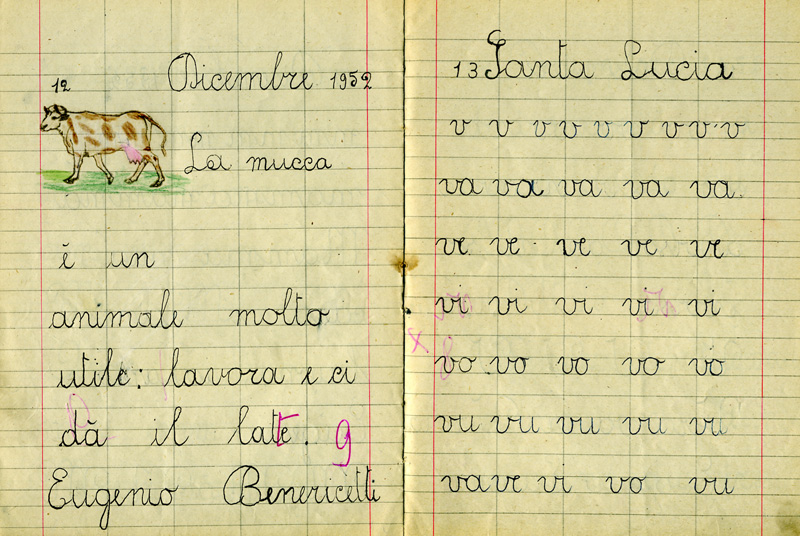 12 Dicembre 1952
La mucca
è un
animale molto
utile: lavora e ci
dà il latte. 9
Eugenio Benericetti
13 Santa Lucia
v v v v v v v v v
va va va va va
ve ve ve ve ve
vi vi vi vi vi
vo vo vo vo vo
vu vu vu vu vu
va ve vi vo vu